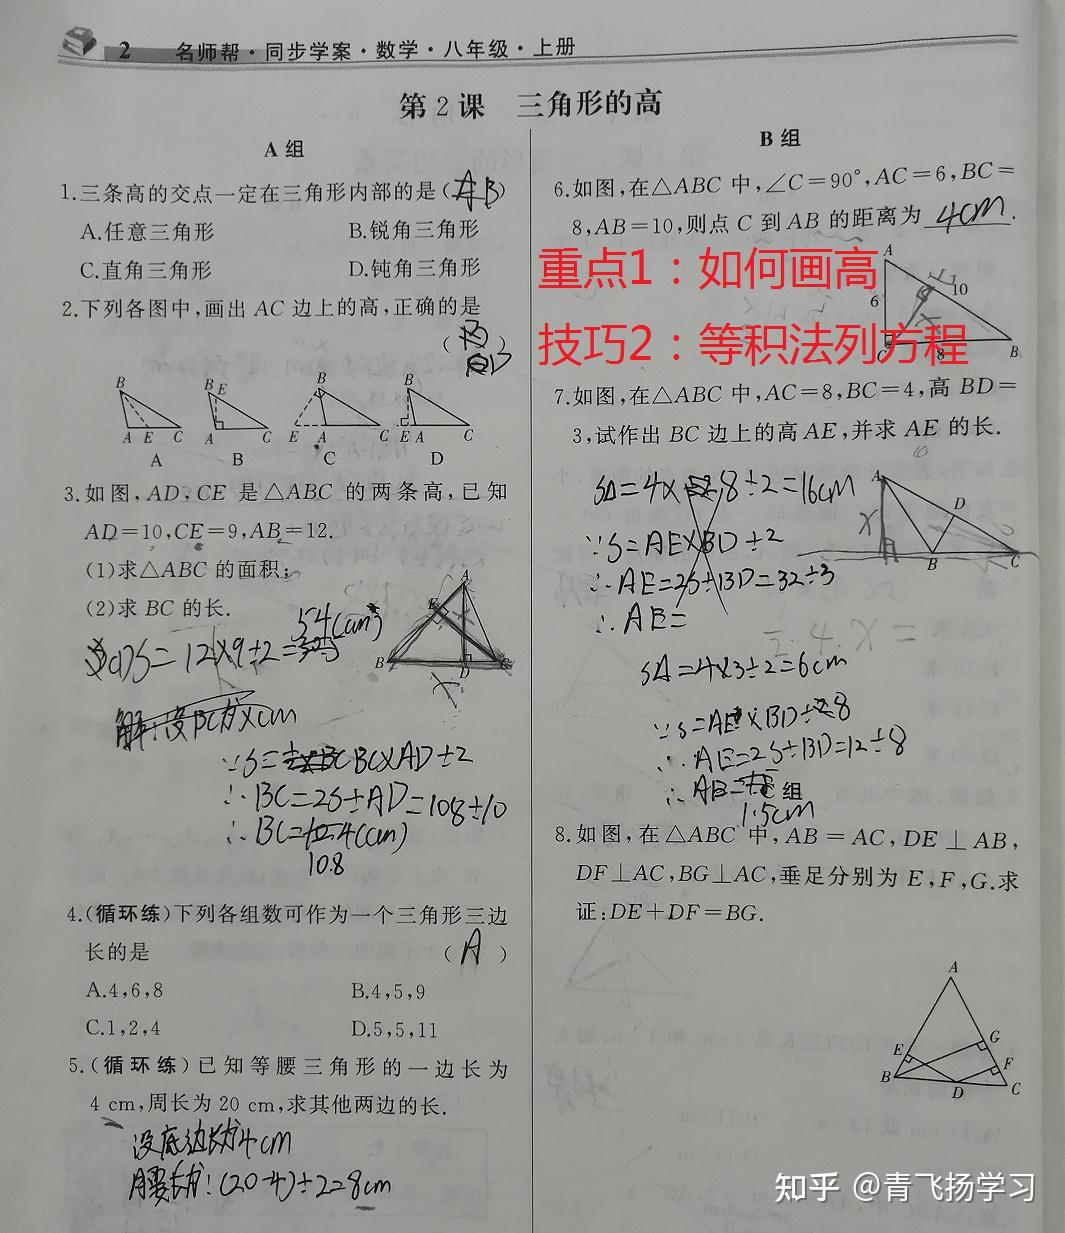 2 名师帮·同步学案·数学·八年级·上册
第2课 三角形的高
A组
1.三条高的交点一定在三角形内部的是(B)
A.任意三角形 B.锐角三角形
C.直角三角形 D.钝角三角形
2.下列各图中,画出AC边上的高,正确的是
( D )
B B E B B
A E C A C E A C E A C
A B C D
3.如图,AD,CE是△ABC的两条高,已知
AD=10,CE=9,AB=12.
(1)求△ABC的面积;
(2)求BC的长.
A E B D C
(1)S=12×9÷2=54(cm²)
解:设BC为xcm
∵S=BC×AD÷2
∴BC=2S÷AD=108÷10
∴BC=10.8(cm)
4.(循环练)下列各组数可作为一个三角形三边
长的是 (A)
A.4,6,8 B.4,5,9
C.1,2,4 D.5,5,11
5.(循环练)已知等腰三角形的一边长为
4 cm,周长为20 cm,求其他两边的长.
设底边长为4cm
腰长为:(20-4)÷2=8cm
B组
6.如图,在△ABC中,∠C=90°,AC=6,BC=
8,AB=10,则点C到AB的距离为 4cm .
重点1：如何画高
技巧2：等积法列方程
A 6 10 C 8 B
7.如图,在△ABC中,AC=8,BC=4,高BD=
3,试作出BC边上的高AE,并求AE的长.
A D B C
S△=4×8÷2=16cm
∵S=AE×BD÷2
∴AE=2S÷BD=32÷3
∴AE=
S△=4×3÷2=6cm
∵S=AE×BD÷2
∴AE=2S÷BD=12÷8
∴AE=1.5cm
C组
8.如图,在△ABC中,AB=AC,DE⊥AB,
DF⊥AC,BG⊥AC,垂足分别为E,F,G.求
证:DE+DF=BG.
A G E F B D C
知乎 @青飞扬学习